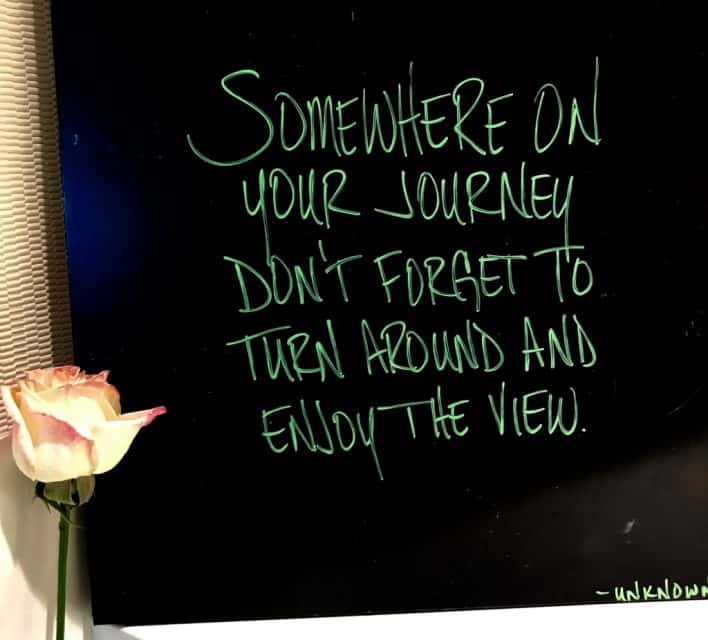 SOMEWHERE ON
YOUR JOURNEY
DON'T FORGET TO
TURN AROUND AND
ENJOY THE VIEW.
-UNKNOWN